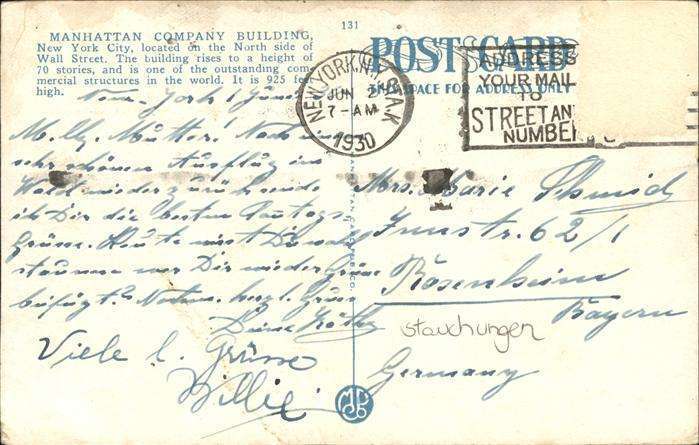 MANHATTAN COMPANY BUILDING,
New York City, located on the North side of
Wall Street. The building rises to a height of
70 stories, and is one of the outstanding com
mercial structures in the world. It is 925 feet
high.
131
POST CARD
SPACE FOR ADDRESS ONLY
NEW YORK, N.Y. STA. K
JUN 2
7-AM
1930
ADDRESS
YOUR MAIL
TO
STREET AN
NUMBE
New-York 1 Juni
M. lb. Mutter! Nach
sehr schönen Ausflug im
Wald wieder zurück sende
ich Dir die besten
Grüsse. Heute wirst Du
staunen wer Dir wieder Grüsse
beifügt? herzl. Gruss
Deine Käthy
Viele l. Grüsse
Willie
Mrs. Marie Schmid
Innstr. 62/1
Rosenheim
Bayern
Germany
stauchungen